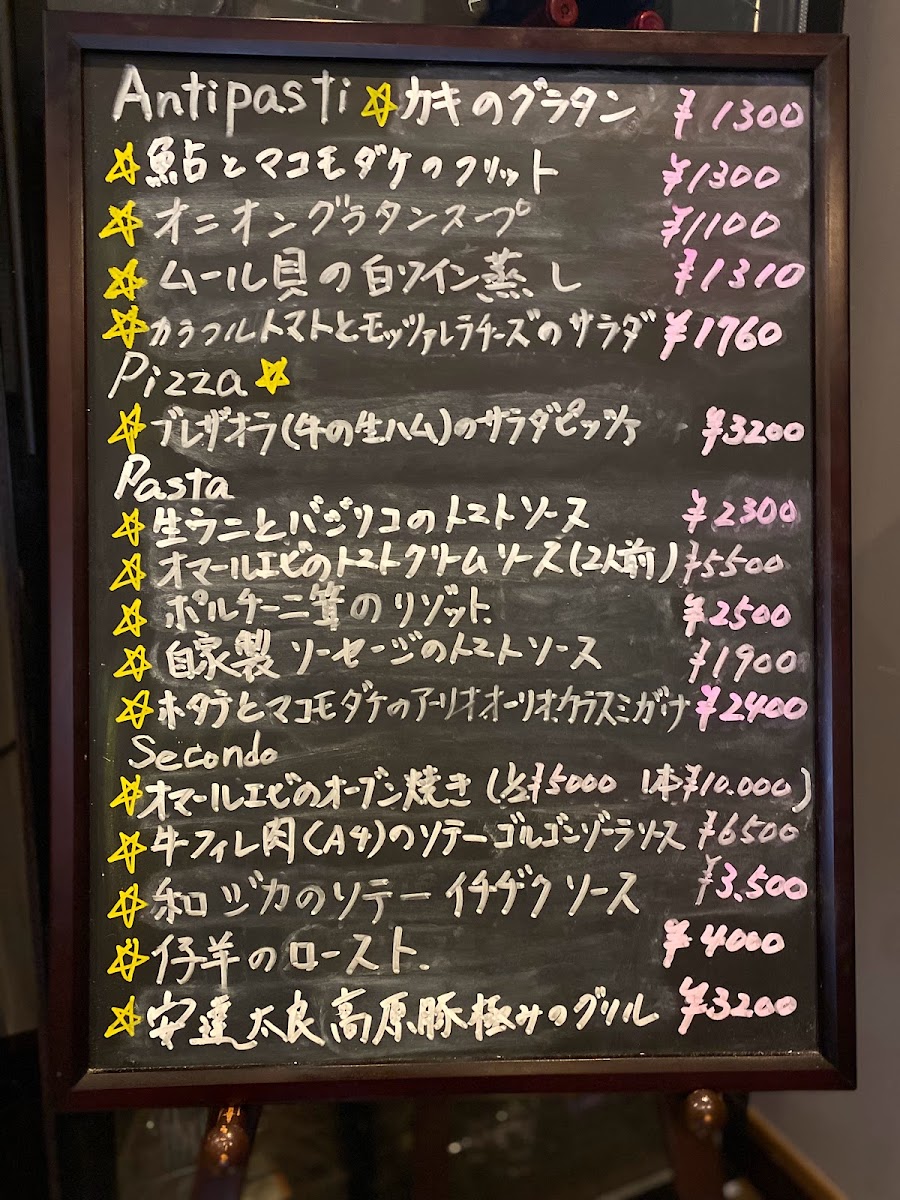 Antipasti ☆カキのグラタン ¥1300
☆鮎とマコモダケのフリット ¥1300
☆オニオングラタンスープ ¥1100
☆ムール貝の白ワイン蒸し ¥1310
☆カラフルトマトとモッツァレラチーズのサラダ ¥1760
Pizza☆
☆ブレザオラ(牛の生ハム)のサラダピッツァ ¥3200
Pasta
☆生ウニとバジリコのトマトソース ¥2300
☆オマールエビのトマトクリームソース(2人前) ¥5500
☆ポルチーニ茸のリゾット. ¥2500
☆自家製ソーセージのトマトソース ¥1900
☆ホタテとマコモダケのアーリオ.オーリオ.カラスミがけ ¥2400
Secondo
☆オマールエビのオーブン焼き(½¥5000 1本¥10.000)
☆牛フィレ肉(A4)のソテーゴルゴンゾーラソース ¥6500
☆和ジカのソテー イチヂクソース ¥3.500
☆仔羊のロースト. ¥4000
☆安達太良高原豚極みのグリル ¥3200